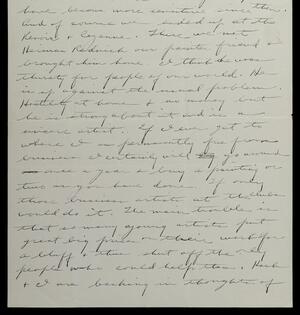 have become more sensitive since then.
And of course we ended up at the
Renoir & Cezanne. There we met
Herman our painter friend &
brought him home. I think he was
thirsty for people of our world. He
is up against the usual problem.
at home & no money but
he is strong about it and is a
sincere artist. If I ever get to
where I am permanently free from
business I certainly will go around
once a year & buy a painting or
two as you have done. If only
those business artists at the clubs
would do it. The main trouble is
that so many young artists put
great big prices on their work for
a bluff & thus shut off the real
people who could help them.
& I are basking in thoughts of